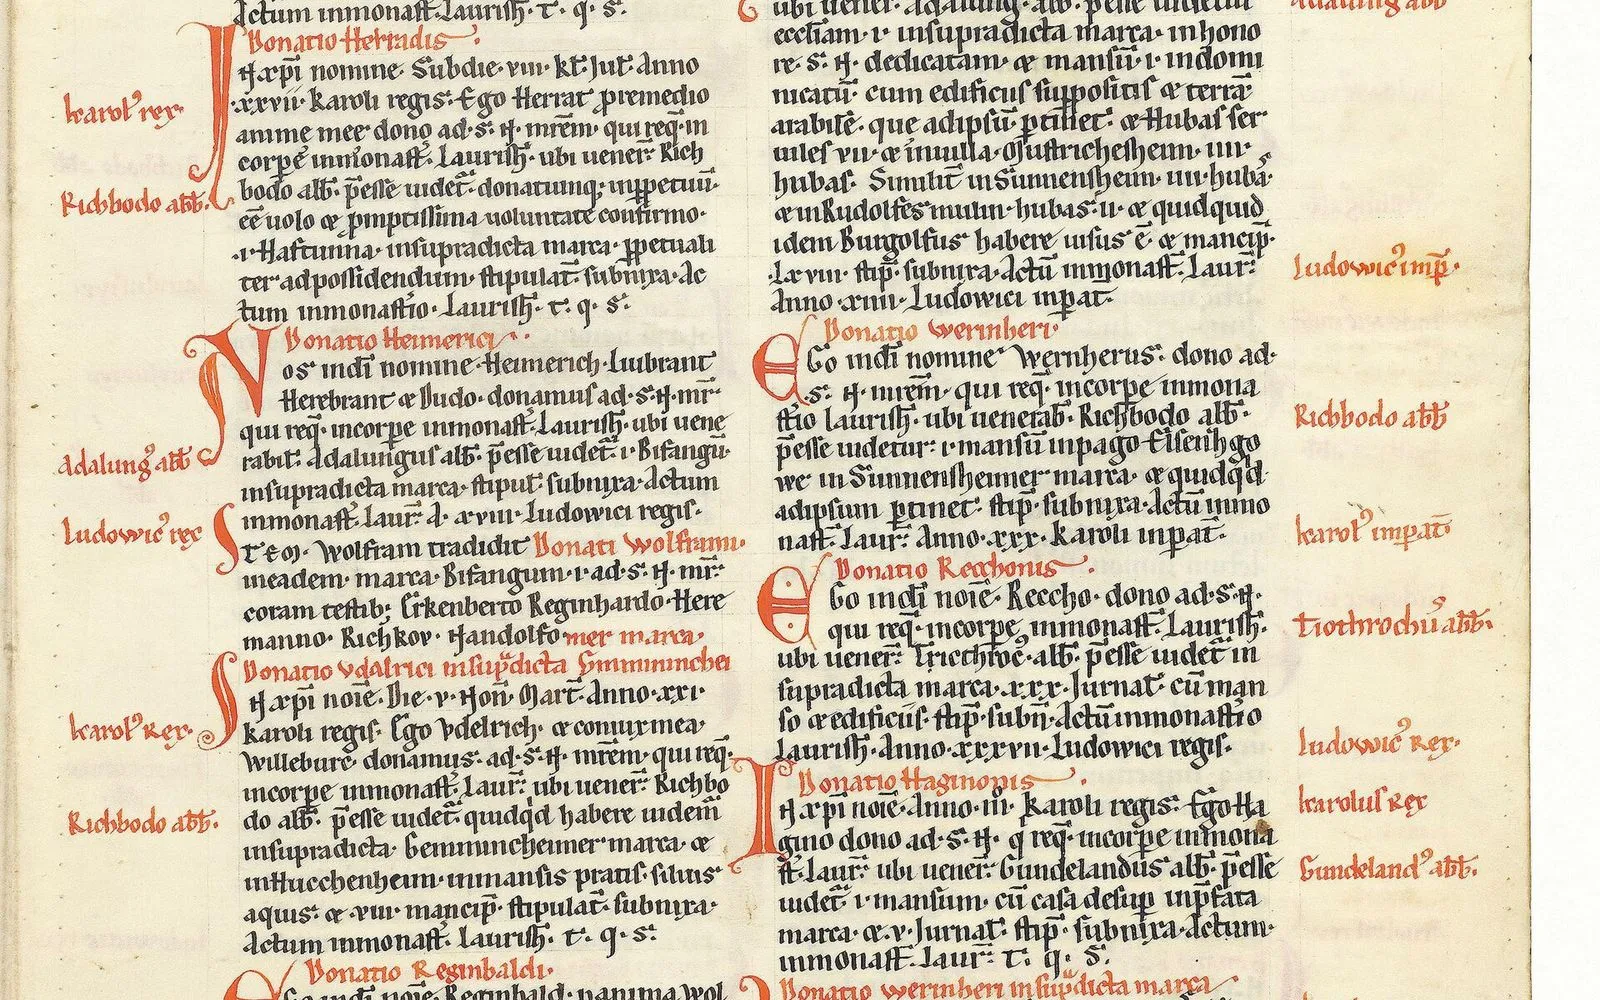 Actum inmonast. Laurish. t. q. s.
Donatio Herradis
Karol' rex.
IN xpi nomine. Subdie. viii. kl. Jul. Anno
.xxvii. karoli regis. Ego Herrat premedio
anime mee dono ad. s. N. mrem. qui req. in
corpe inmonast. Laurish. ubi uener. Rich
Richbodo abb.
bodo abb. pesse uidet. donatumq; inppetuu.
ee uolo & pmptissima uoluntate confirmo.
.i. Hastunna. insupradicta marca. ppetuali
ter adpossidendum. stipulat. subnixa. Ac
tum inmonastio. Laurish. t. q. s.
Donatio Heimerici
NOS indi nomine. Heimerich. Luibrant
Herebrant & Dudo. donamus ad. s. N. mr.
qui req. incorpe inmonast. Laurish. ubi uene
Adalung' abb
rabil. Adalungus abb. pesse uidet. i. Bifangu.
insupradicta marca. stipul. subnixa. Actum
Ludowic' rex
inmonast. Laur. A. xviii. Ludowici regis.
STEM. Wolfram tradidit Donati Wolframi.
ineadem. marca. Bifangum. i. ad. s. N. mr.
coram testib; Erkenberto Reginhardo. Here
manno. Richkov. Nandolfo mer marca.
Donatio Vdalrici insupdicta Gimminchei
IN xpi noie. Die. v. Non. Mart. Anno. xxi.
Karol' Rex.
karoli regis. Ego Vdelrich. & coniux mea.
Willeburc. donamus. ad. s. N. mrem. qui req.
incorpe inmonast. Laur. ubi uener. Richbo
Richbodo abb.
do abb. pesse uidet. quidqd habere uidem
insupradicta. Gemmincheimer marca. &
inHucchenheim. inmansis pratis. siluis
aquis. & viii. mancip. stipulat. subnixa.
Actum inmonast. Laurish. t. q. s.
Donatio Reginbaldi.
Ego indi noie. Reginbald. panima Wol
ubi uener. Adalung. abb. pesse uidetur
Adalung abb
eccliam. i. insupradicta marca. inhono
re. s. N. dedicatam. & mansu. i. indomi
nicatu. cum edificiis suppositis & terra
arabile. que adipsu ptinet. & Hubas ser
uiles vii. & inuilla. Oustrichesheim. iiii.
hubas. Similit inSunnensheim. iiii. huba.
& inRudolfesmulin. hubas. ii. & quidquid
idem Burgolfus habere uisus e. & mancip.
Ludowic' imp.
.Lxviii. stip. subnixa. Actu inmonast. Laur.
Anno. xiiii. Ludowici inpat.
Donatio Werinheri.
EGo indi nomine Wernherus. dono ad.
.s. N. mrem. qui req. incorpe inmona
stio laurish. ubi uenerab. Richbodo abb.
Richbodo abb
pesse uidetur. i. mansu inpago Elsenhgo
we in Sunnensheimer marca. & quidqd
adipsum ptinet. stip. subnixa. Actu inmo
nast. Laur. Anno. xxx. Karoli inpat.
Karol' impat
Donatio Recchonis.
EGo indi noie. Reccho. dono ad. s. N.
qui req. incorpe inmonast. Laurish.
Tiothrochu' abb.
ubi uener. abb. pesse uidet in
supradicta marca. xxx. Jurnal. cu man
so & edificiis. stip. subn. Actu inmonastio
Laurish. Anno. xxxvii. Ludowici regis.
Ludowic' Rex.
Donatio Haginonis.
IN xpi noie. Anno. iii. karoli regis. Ego Ha
Karolus Rex
gino dono ad. s. N. q req. incorpe inmona
st. Laur. ubi uener. Gundelandus abb. pesse
Gundeland' abb.
uidet. i. mansum. cu casa desup inpfata
marca. &. v. Jurnal. stip. subnixa. Actum.
inmonast. Laur. t. q. s.
Donatio Werinheri insupdicta marca